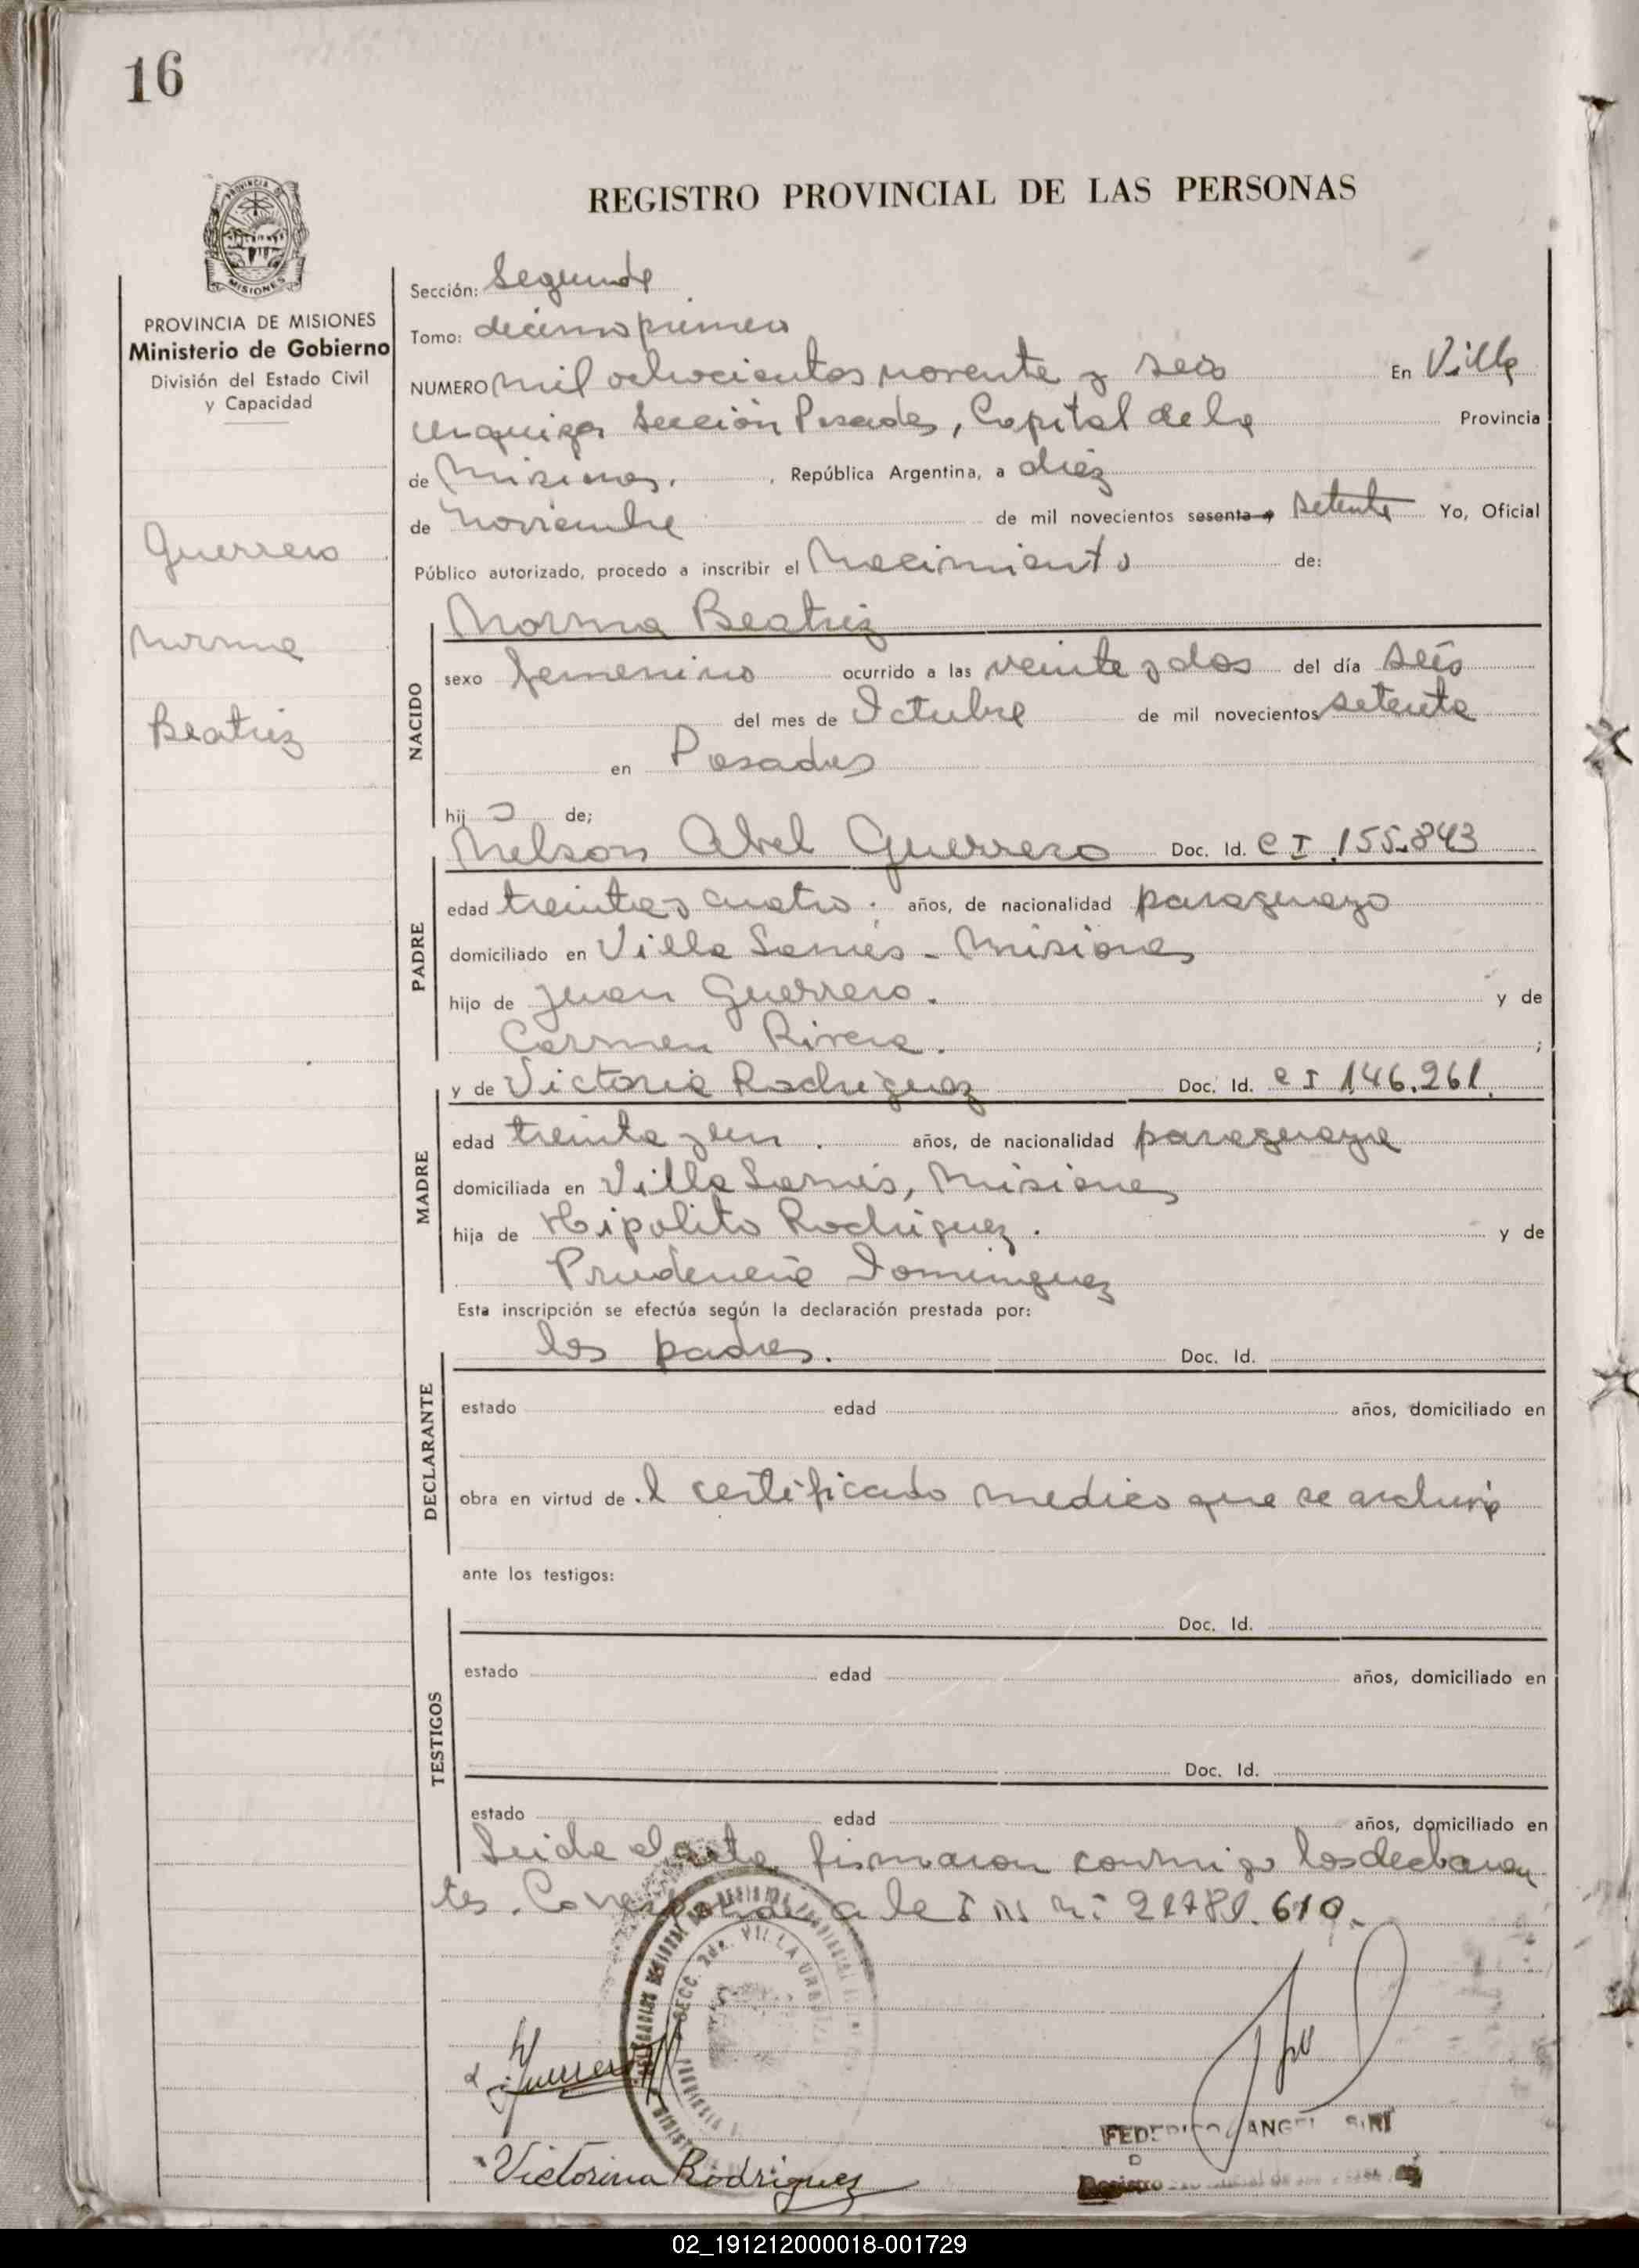 16
PROVINCIA DE MISIONES
REGISTRO PROVINCIAL DE LAS PERSONAS
PROVINCIA DE MISIONES
Ministerio de Gobierno
División del Estado Civil
y Capacidad
Guerrero
Norma
Beatriz
Sección: Segunda
Tomo: decimoprimero
NUMERO mil ochocientos noventa y seis En Villa
Urquiza Sección Posadas, Capital de la Provincia
de Misiones. , República Argentina, a diéz
de noviembre de mil novecientos sesenta y setenta Yo, Oficial
Público autorizado, procedo a inscribir el Nacimiento de:
NACIDO
Norma Beatriz
sexo femenino ocurrido a las veinte y dos del día seis
del mes de Octubre de mil novecientos setenta
en Posadas
hij a de;
PADRE
Nelson Abel Guerrero Doc. Id. C I .155.843
edad treinta y cuatro . años, de nacionalidad paraguayo
domiciliado en Villa Lanús - Misiones
hijo de Juan Guerrero. y de
Carmen Rivera. ;
MADRE
y de Victoria Rodriguez Doc. Id. C I 146.261.
edad treinta y un . años, de nacionalidad paraguaya
domiciliada en Villa Lanús, Misiones
hija de Hipolito Rodriguez. y de
Prudencia Dominguez
Esta inscripción se efectúa según la declaración prestada por:
DECLARANTE
los padres. Doc. Id.
estado edad años, domiciliado en
obra en virtud de .l certificado medico que se archiva
ante los testigos:
TESTIGOS
Doc. Id.
estado edad años, domiciliado en
Doc. Id.
estado edad años, domiciliado en
Leida el acta firmaron conmigo los declaran
tes. Corresponde a le I N n: 21781.610.
SECC. 2da. VILLA
Guerrero
Victorina Rodriguez
FEDERICO ANGEL SIRI
Registro
02_191212000018-001729